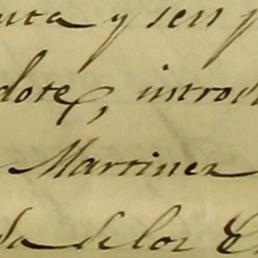 uta y sen p
dote, introd
Martinez
da de los E